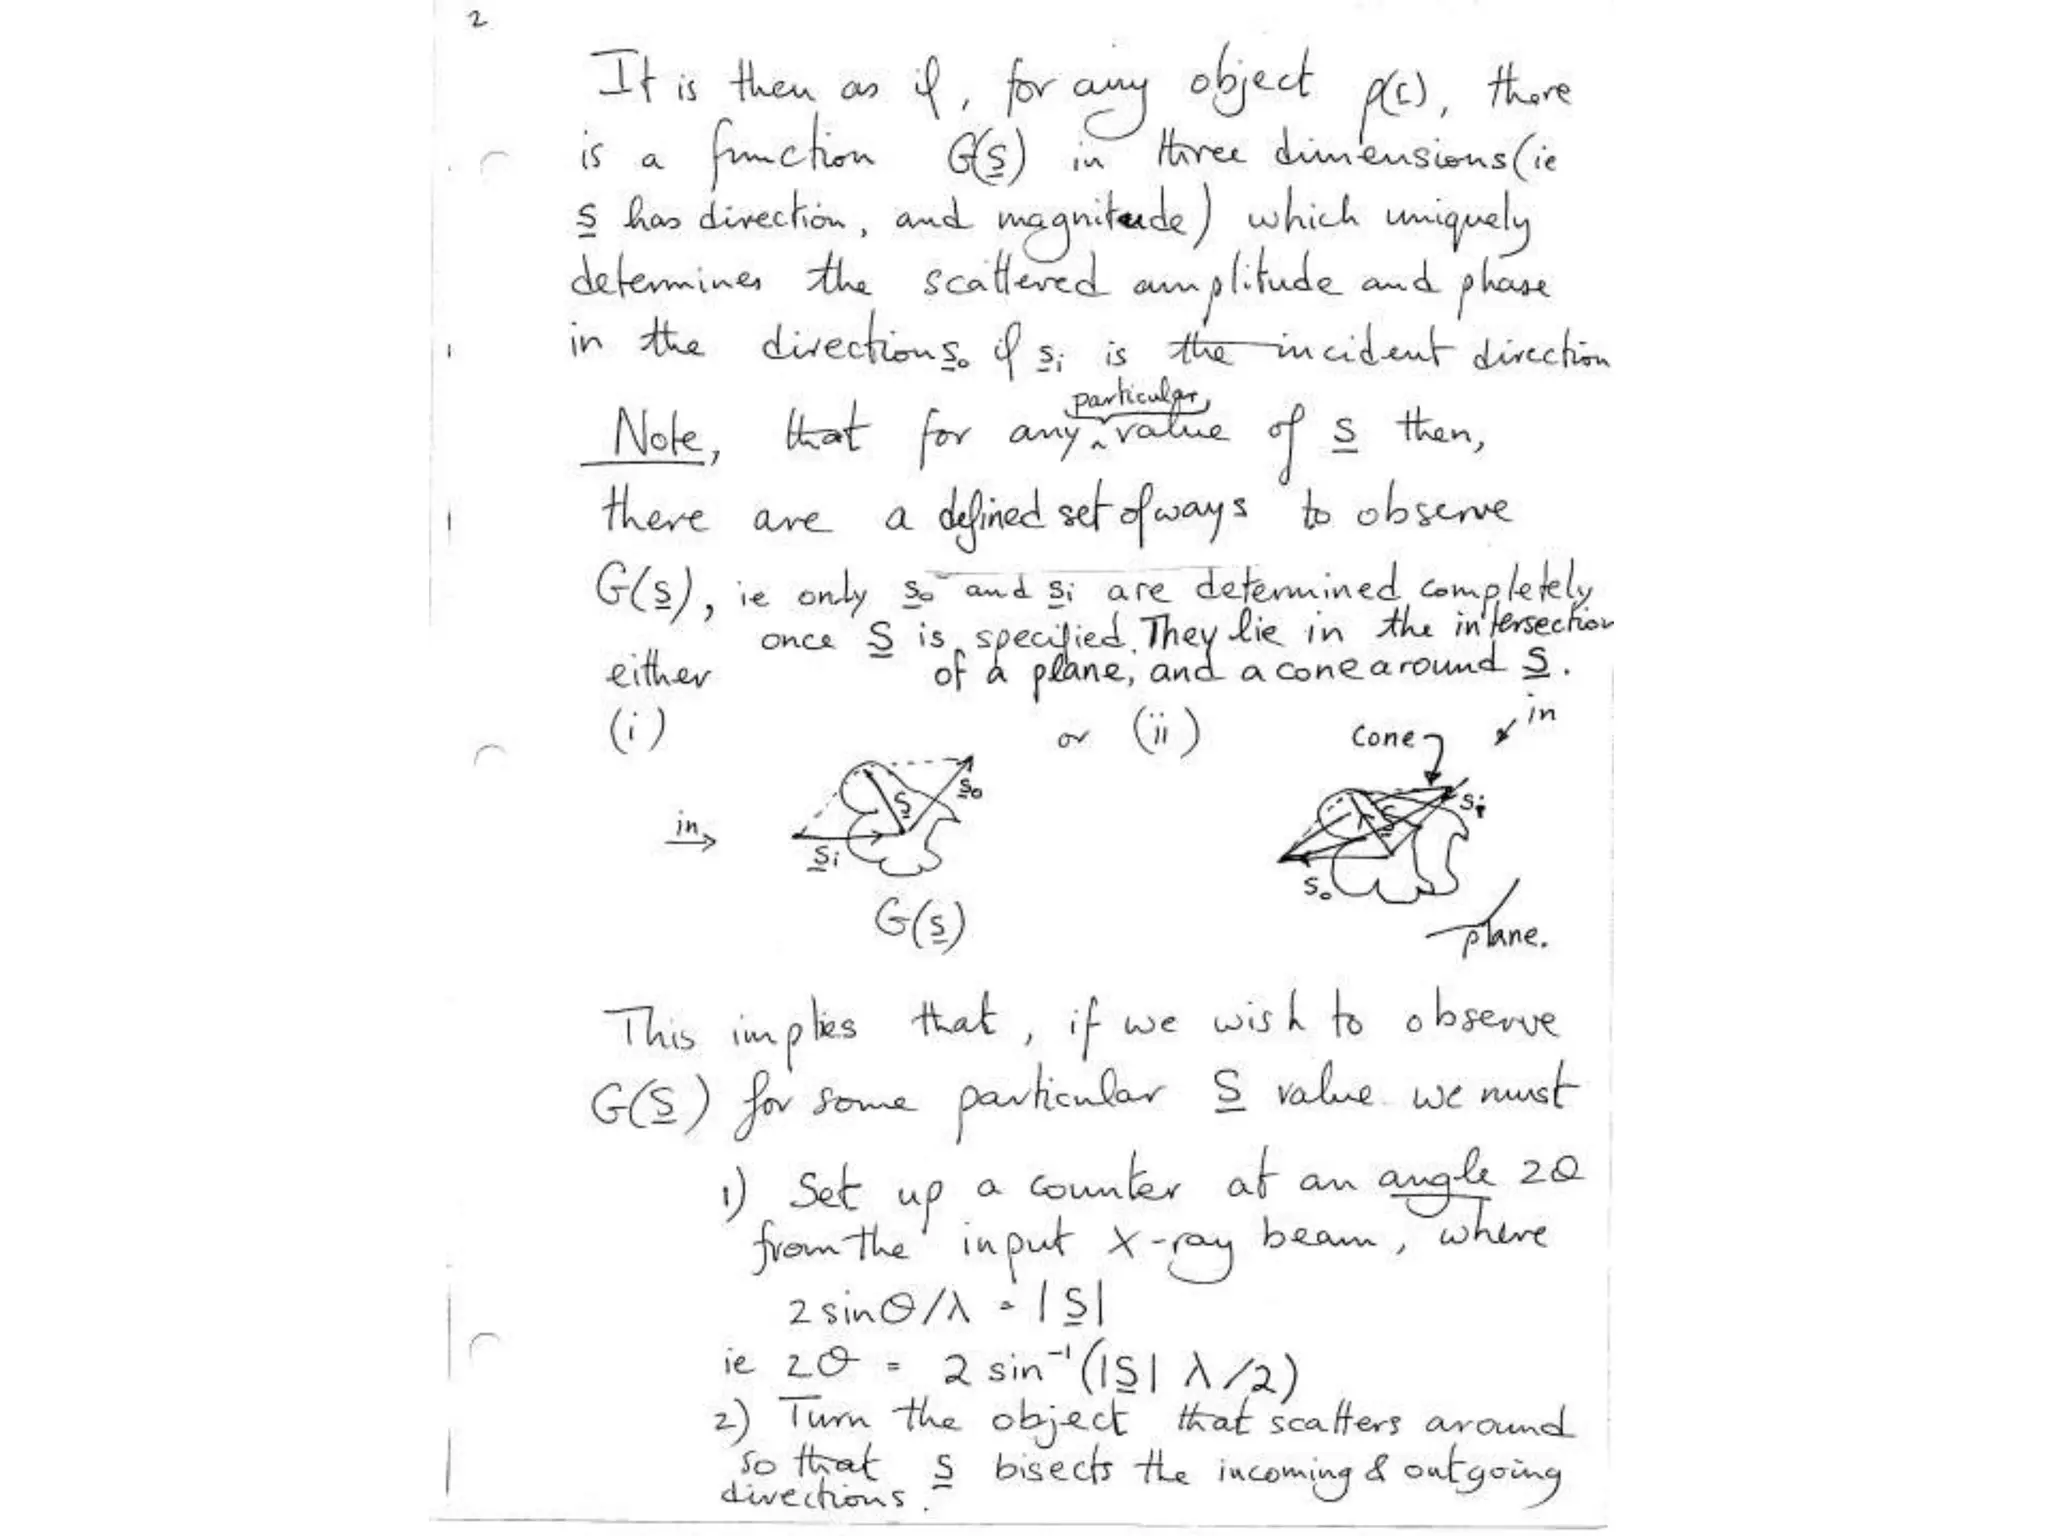 2
It is then as if, for any object ρ(r), there
is a function G(S) in three dimensions (ie
S has direction, and magnitude) which uniquely
determines the scattered amplitude and phase
in the directions so if si is the incident direction
particular
Note, that for any value of S then,
there are a defined set of ways to observe
G(S), ie only so and si are determined completely
once S is specified. They lie in the intersection
either of a plane, and a cone around S.
(i) or (ii) cone in
in→ si S so si S so
G(S) plane.
This implies that, if we wish to observe
G(S) for some particular S value we must
1) Set up a counter at an angle 2θ
from the input X-ray beam, where
2 sinθ/λ = |S|
ie 2θ = 2 sin⁻¹(|S| λ/2)
2) Turn the object that scatters around
so that S bisects the incoming & outgoing
directions.